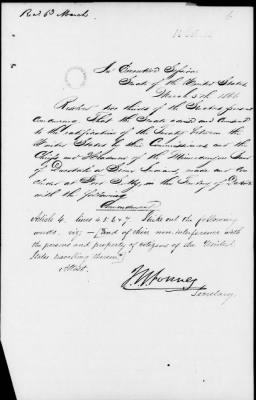 Rec 6th March
In Executive Session
Senate of the United States
March 5th 1866
Resolved, two thirds of the Senators present
concurring, That the Senate advise and consent
to the ratification of the Treaty between the
United States by their Commissioners and the
Chiefs and Headmen of the Minneconjou band
of Dakota or Sioux Indians, made and con
cluded at Fort Sully, in the Territory of Dakota
with the following
Amendment
Article 4. lines 4.5.6 & 7. Strike out the following
words, viz; — "And of their non-interference with
the persons and property of citizens of the United
States travelling thereon"
Attest.
J. W. Forney
Secretary.